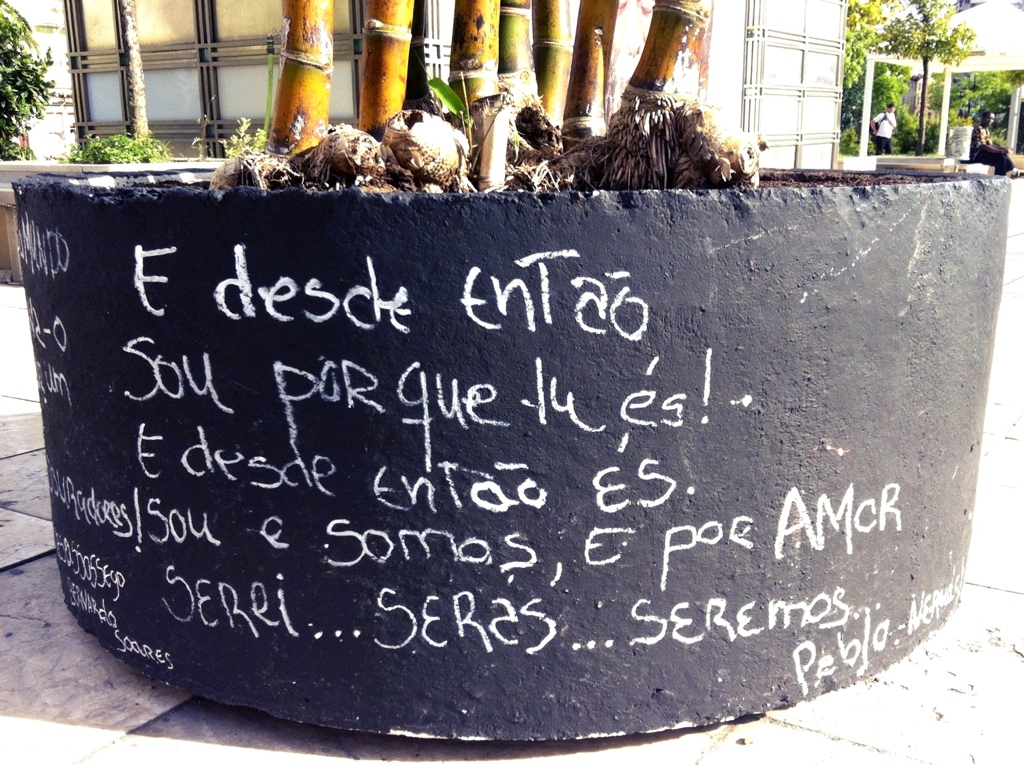 E desde então
Sou por que tu és!.
E desde então és.
Sou e somos, E por AMOR
SEREI... SERÁS... SEREMOS.
Pablo-Neruda
MUNDO
a-o
um
DESASSOSSEGO
BERNARDO
SOARES